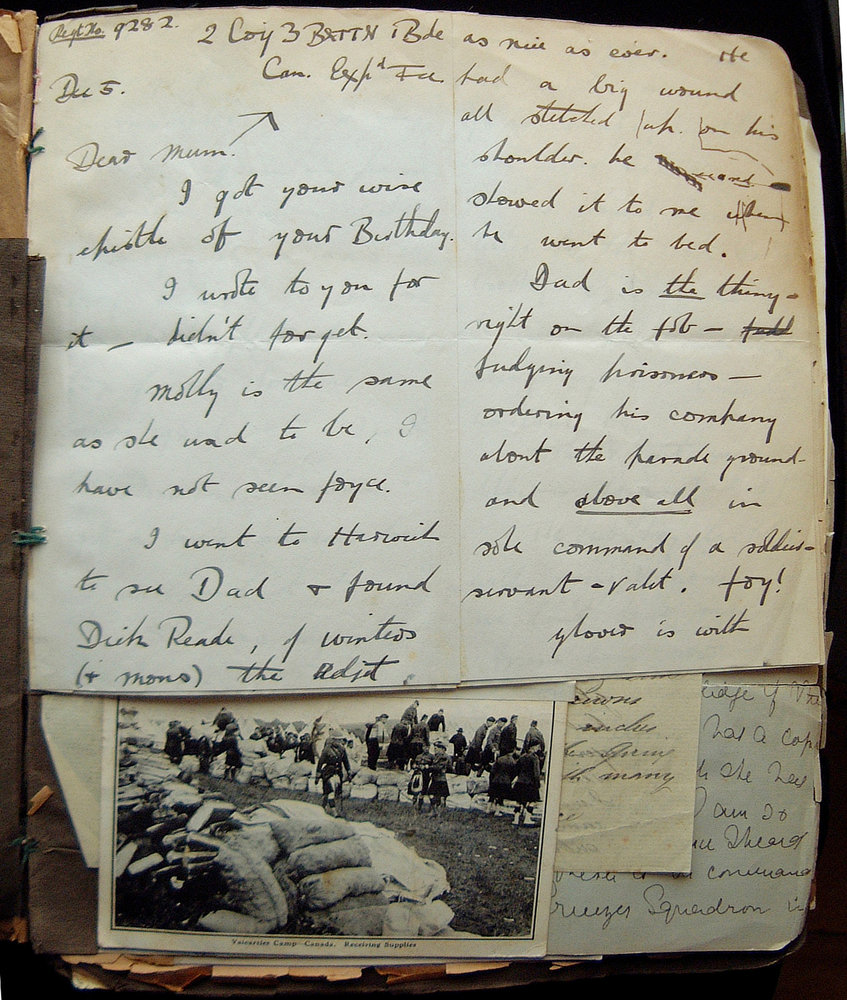 Regt No. 9282. 2 Coy 3 BATTN 1 Bde
Can. Exp'd Fce
Dec 5.
Dear Mum.
I got your wise
epistle of your Birthday.
I wrote to you for
it — didn't forget.
Molly is the same
as she used to be, I
have not seen Joyce.
I went to Harwich
to see Dad & found
Dick Reade, of winters
(& mons) the Adjt.
as nice as ever. He
had a big wound
all stitched up. on his
shoulder. he
showed it to me when
he went to bed.
Dad is the thing —
right on the job —
Judging prisoners —
ordering his company
about the parade ground —
and above all in
sole command of a soldier-
servant - valet. Joy!
Glover is with
inches
many
has a copy
she has
I am so
I heard
command
Squadron in
Valcartier Camp—Canada. Receiving Supplies